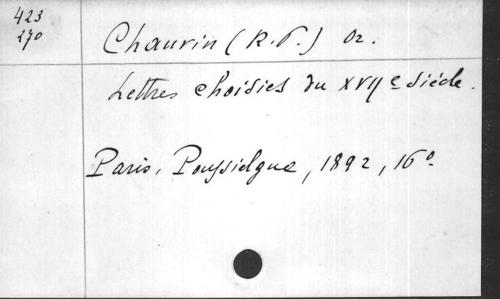 423
270
Chauvin (R. P.) Or.
Lettres choisies du XVIIe siècle.
Paris, Poussielgue, 1892, 16º